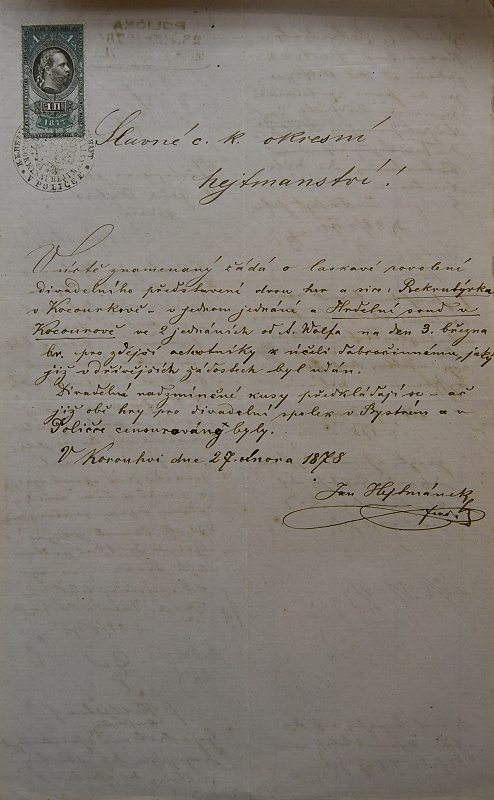 POLIČKA
1 1
1877
V POLIČCE
Slavné c. k. okresní
hejtmanství!
V úctě znamenaný žádá o laskavé povolení
divadelního představení dvou her a sice: Rekrutýrka
v Kocourkově – v jednom jednání a Hrdelní soud v
Kocourově ve 2 jednáních od A. Wolfa, na den 3. března
br. pro zdejší ochotníky k účeli dobročinnému, jaký
již v dřívějších žádostech byl udán.
Divadelné nadzmíněné kusy předkládají se – ač
již obě hry pro divadelní spolek v Bystrém a v
Poličce censurovány byly.
V Korouhvi dne 27. února 1878
Jan Hejtmánek